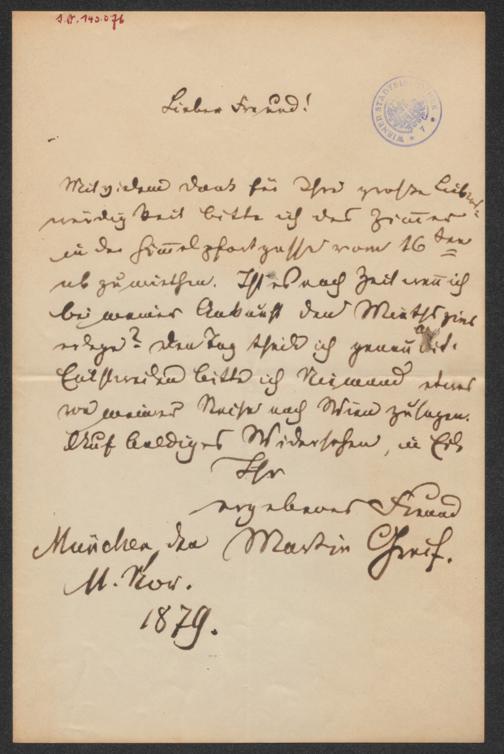 I.N. 143.076
WIENER STADTBIBLIOTHEK
Lieber Freund!
Mit vielem Dank für Ihre große Liebens-
würdigkeit bitte ich das Zimmer
in der Himmelpfortgasse vom 16ten
ab zu miethen. Ist es noch Zeit wenn ich
bei meiner Ankunft den Miethszins
erlege? Den Tag theile ich genau mit.
Einstweilen bitte ich Niemand etwas
von meiner Reise nach Wien zu sagen.
Auf baldiges Wiedersehen, in Eile
Ihr
ergebener Freund
München, den Martin Greif.
11. Nov.
1879.